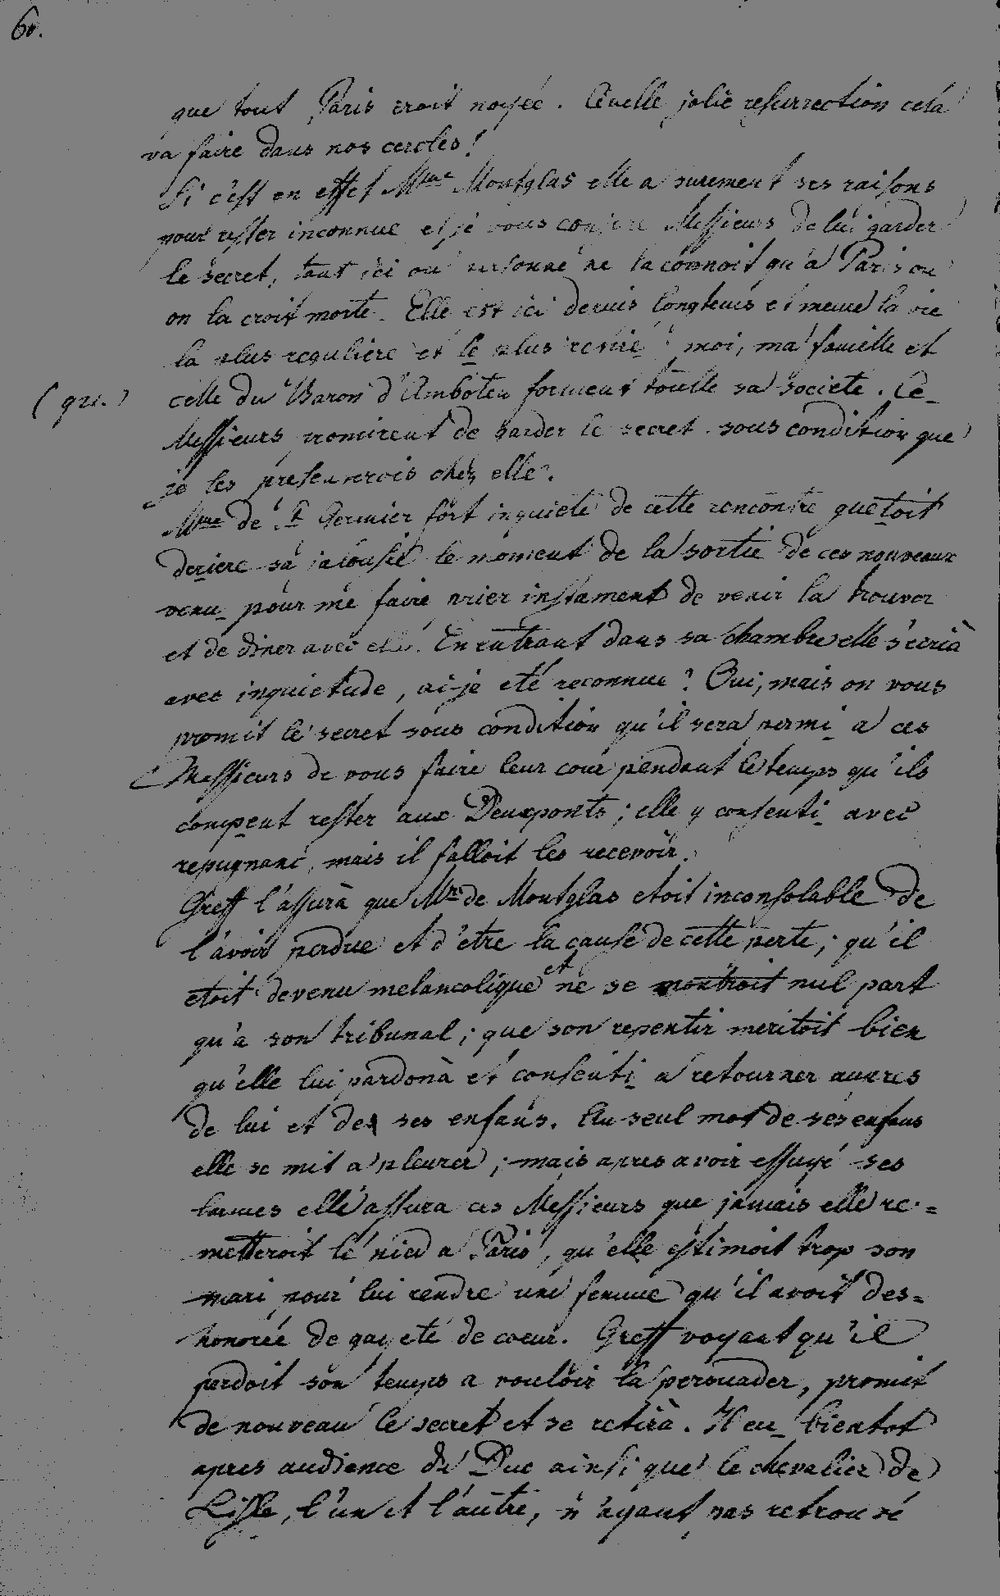 60.
que tout Paris croit noyée. Quelle jolie resurrection cela
va faire dans nos cercles!
Si c'est en effet Mme Montglas elle a surement ses raisons
pour rester inconnue et je vous conjure Messieurs de lui garder
le secret, tant ici ou personne ne la connoit qu'a Paris ou
on la croit morte. Elle est ici depuis longtems et mene la vie
la plus reguliere et le plus retiré: moi, ma famille et
celle du Baron d'Amboten forment toutte sa societé. Ce_
(qu.)
Messieurs promirent de garder le secret sous condition que
je les presenterois chez elle.
Mme de St Germier fort inquiete de cette rencontre guetoit
deriere sa jalousie le moment de la sortie de ces nouveaux
venu_ pour me faire prier instament de venir la trouver
et de diner avec elle. En entrant dans sa chambre elle s'ecrià
avec inquietude, ai-je eté reconnue? Oui, mais on vous
promit le secret sous condition qu'il sera permi_ a ces
Messieurs de vous faire leur cour pendant le temps qu'ils
compent rester aux Deuxponts; elle y consenti_ avec
repugnanc, mais il falloit les recevoir.
Greff l'assurà que Mr de Montglas etoit inconsolable de
l'avoir perdue et d'etre la cause de cette perte; qu'il
etoit devenu melancolique et ne se montroit nul part
qu'a son tribunal; que son repentir meritoit bien
qu'elle lui pardonà et consenti_ a retourner aupres
de lui et de ses enfans. Au seul mot de ses enfans
elle se mit a pleurer; mais apres avoir essuyé ses
larmes elle assura ces Messieurs que jamais elle re-=
metteroit le pied a Paris, qu'elle estimoit trop son
mari pour lui rendre une femme qu'il avoit des=
honorée de gayeté de coeur. Greff voyant qu'il
perdoit son temps a vouloir la persuader, promit
de nouveau le secret et se retirà. Il eu_ bientot
apres audience du Duc ainsi que le chevalier de
Lisle, l'un et l'autre, n'ayant pas retrouvé